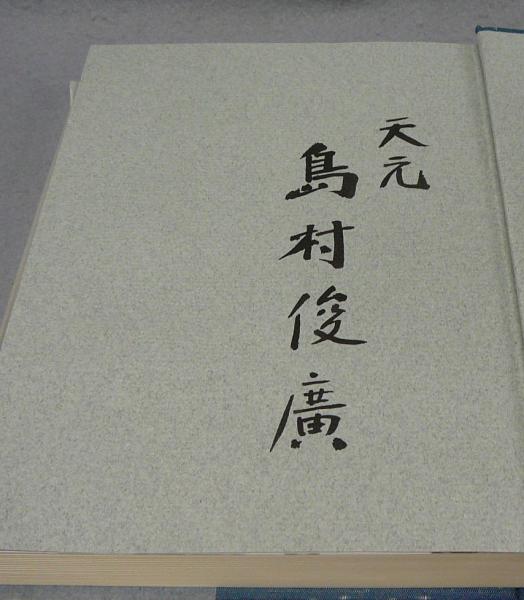 天元
島村俊廣